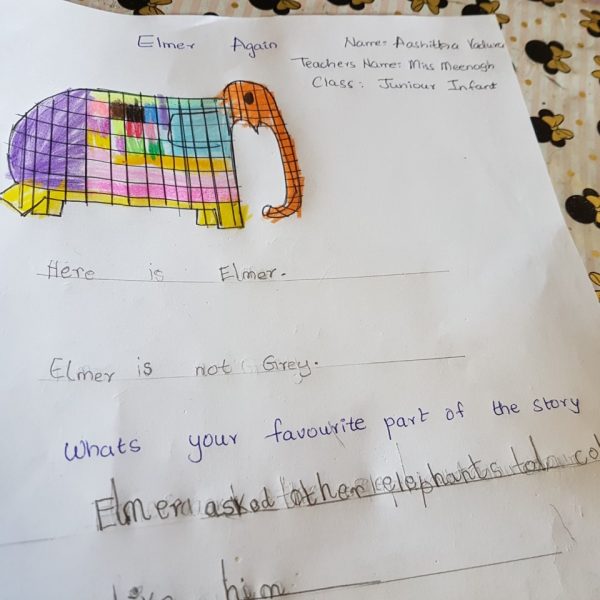 Elmer Again
Name: Aashitbra
Teachers Name: Miss Meenogh
Class: Juniour Infant
Here is Elmer.
Elmer is not Grey.
Whats your favourite part of the story
Elmer asked other elephants to
him